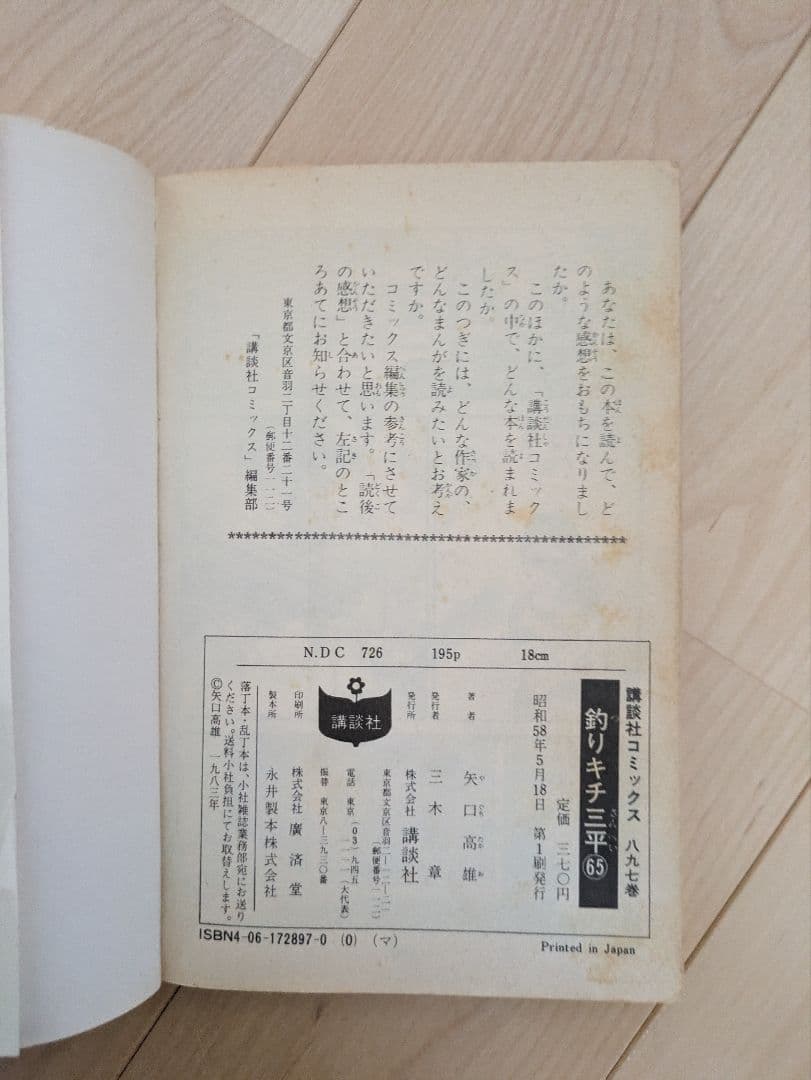 あなたは、この本を読んで、ど
のような感想をおもちになりまし
たか。
このほかに、「講談社コミック
ス」の中で、どんな本を読まれま
したか。
このつぎには、どんな作家の、
どんなまんがを読みたいとお考え
ですか。
コミックス編集の参考にさせて
いただきたいと思います。「読後
の感想」と合わせて、左記のとこ
ろあてにお知らせください。
東京都文京区音羽二丁目十二番二十一号
(郵便番号一一二)
「講談社コミックス」編集部
**************************************************
N.D C 726 195p 18cm
講談社コミックス 八九七巻
釣りキチ三平 65
定価 三七〇円
昭和58年5月18日 第1刷発行
著者 矢口高雄
発行者 三木章
発行所 株式会社 講談社
東京都文京区音羽二―一二―二一
(郵便番号一一二)
電話 東京(03)九四五
―一一一一(大代表)
振替 東京八―三九三〇番
講談社
印刷所 株式会社 廣済堂
製本所 永井製本株式会社
落丁本・乱丁本は、小社雑誌業務部宛にお送り
ください。送料小社負担にてお取替えします。
©矢口高雄 一九八三年
ISBN4-06-172897-0 (0) (マ)
Printed in Japan